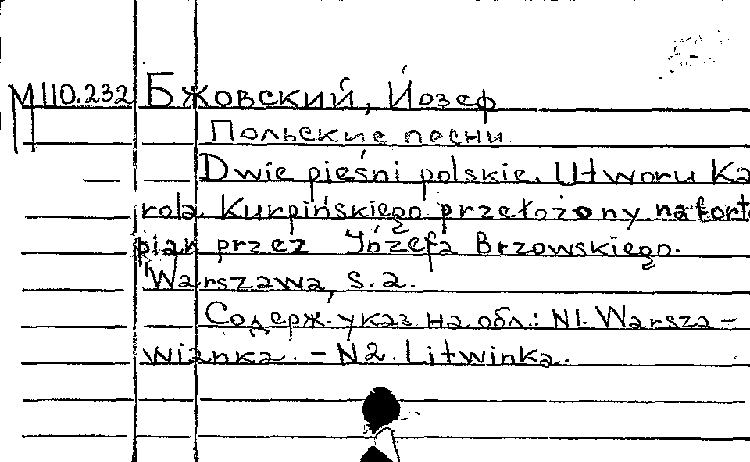 М110.232 Бжовский, Йозеф
Польские песни
Dwie pieśni polskie. Utworu Ka
rola Kurpińskiego przełożony na forte
pian przez Józefa Brzowskiego.
Warszawa, s.a.
Содерж. указ на обл.: N1. Warsza-
wianka. - N2. Litwinka.